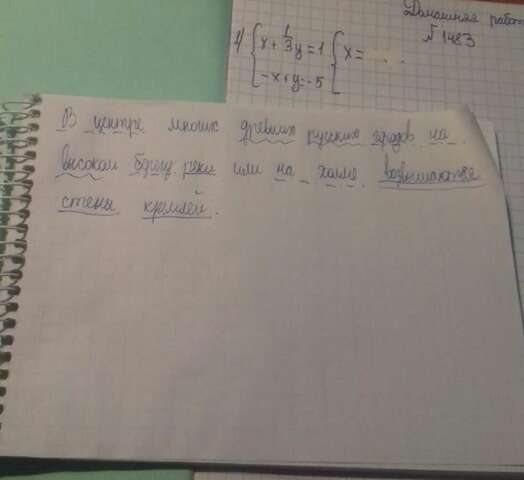 Домашняя работ
№1483
1) { x + 1/3 y = 1 { x =
-x + y = -5
В центре многих древних русских городов на
высоком берегу реки или на холме возвышаются
стены кремлей.